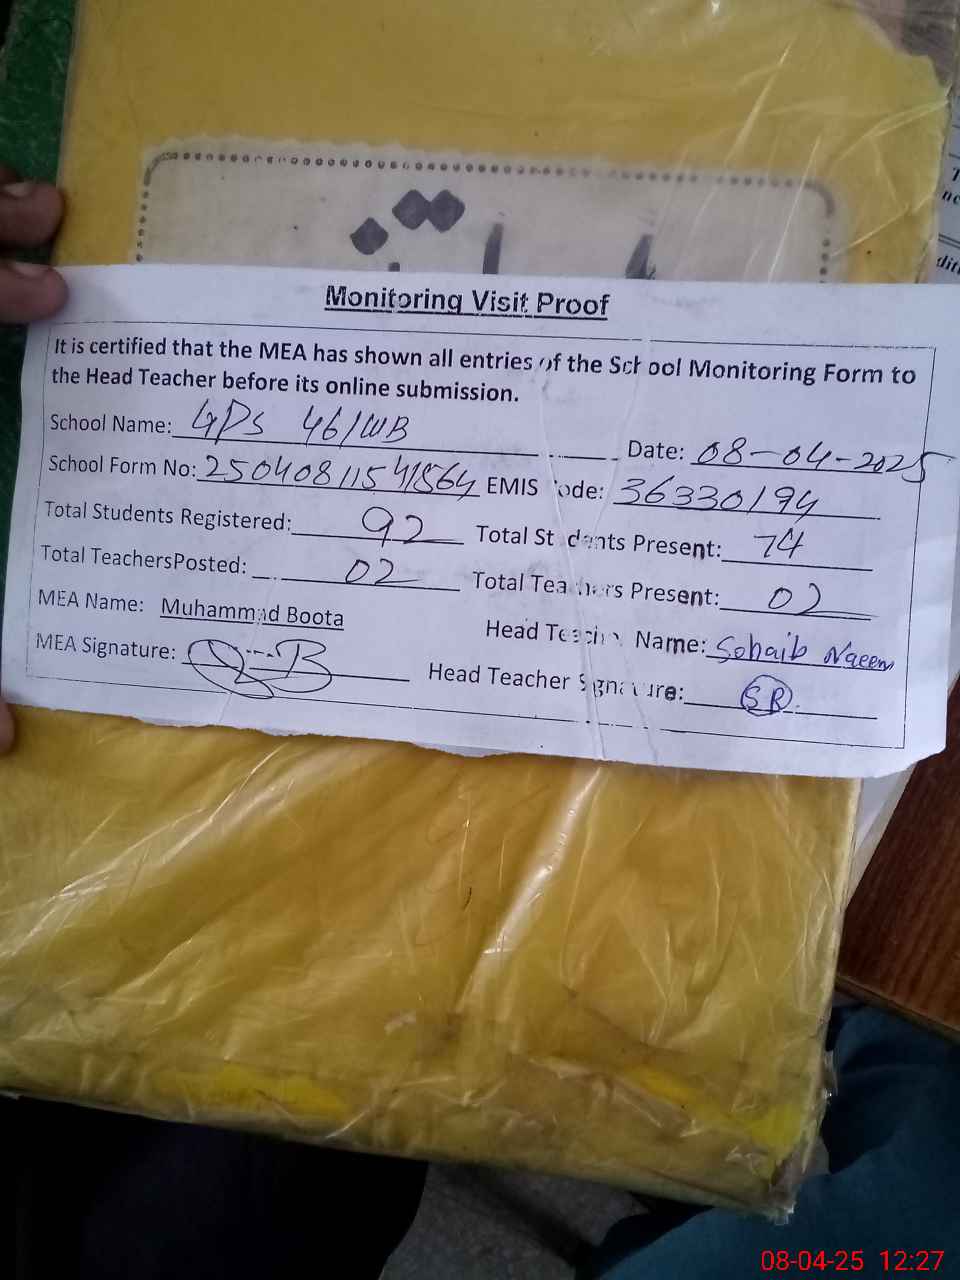 Monitoring Visit Proof
It is certified that the MEA has shown all entries of the School Monitoring Form to
the Head Teacher before its online submission.
School Name: GPS 46/WB Date: 08-04-2025
School Form No: EMIS Code: 36330194
Total Students Registered: 92 Total Students Present: 74
Total TeachersPosted: 02 Total Teachers Present: 02
MEA Name: Muhammad Boota
Head Teacher Name: Sohaib Naeem
MEA Signature:
Head Teacher Signature: SR
08-04-25 12:27